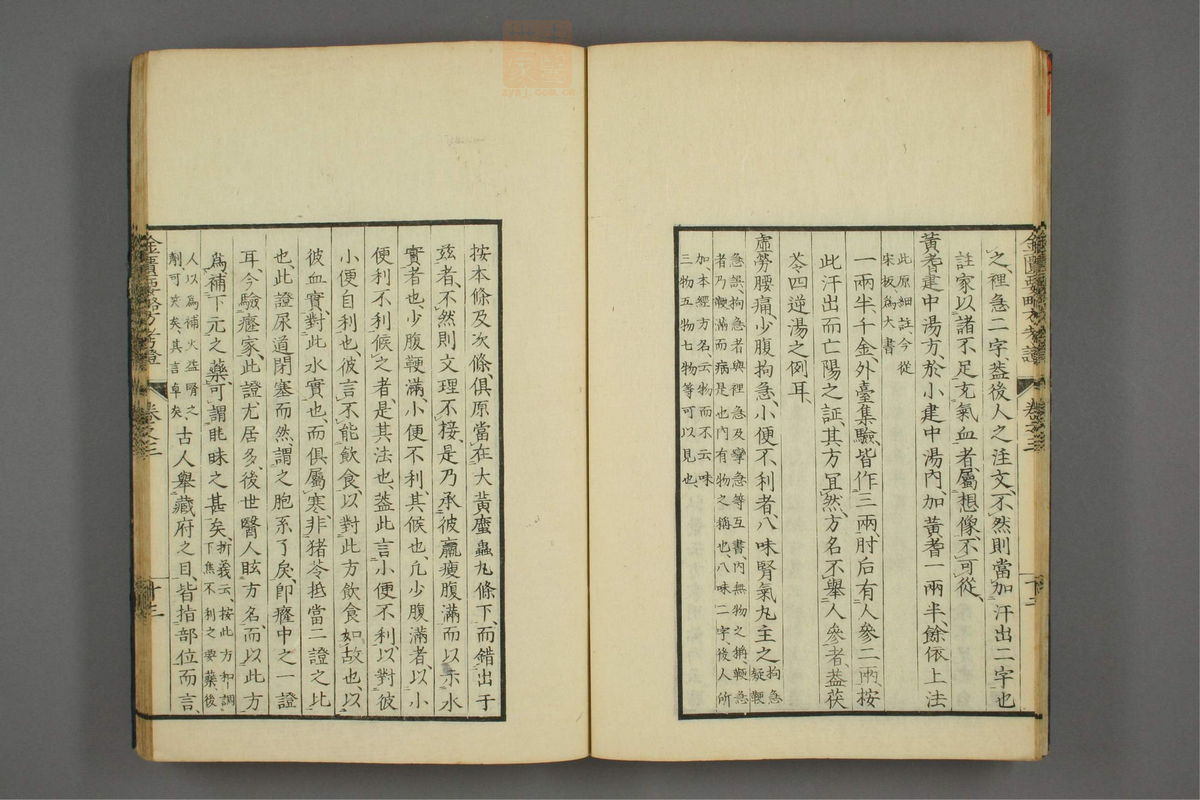 之、裡急二字、葢後人之注文、不然則當加汗出二字也
註家以諸不足充氣血者屬想像、不可從、
黃耆建中湯方、於小建中湯內、加黃耆一兩半、餘依上法
此原細註今從
宋板爲大書
一兩半、千金、外臺集驗、皆作三兩、肘后有人參二兩、按
此汗出而亡陽之証、其方冝然、方名不舉人參者、葢茯
苓四逆湯之例耳、
虛勞腰痛、少腹拘急、小便不利者、八味腎氣丸主之
拘急
疑鞕
急誤、拘急者與裡急及攣急等互書、內無物之稱、鞕急
者乃鞕滿而病是也、內有物之稱也、八味二字、後人所
加、本經方名、云物而不云味
三物五物七物等可以見也、
金匱要略校考證
卷之三
十二
按本條及次條、俱原當在大黃䗪蟲丸條下、而錯出于
玆者、不然則文理不接、是乃承彼羸瘦腹滿而以示水
實者也、少腹鞕滿、小便不利、其候也、凢少腹滿者、以小
便利不利候之者、是其法也、葢此言小便不利、以對彼
小便自利也、彼言不能飲食、以對此方飲食如故也、以
彼血實、對此水實也、而俱屬寒、非猪苓抵當二證之比
也、此證尿道閉塞而然、謂之胞系了戾、卽癃中之一證
耳、今驗癃家、此證尤居多、後世醫人眩方名、而以此方
爲補下元之藥、可謂眊昧之甚矣、
折義云、按此方和調
下焦不利之要藥、後
人以爲補火益腎之
劑、可笑矣、其言卓矣、
古人舉藏府之目、皆指部位而言、
卷之三
十三